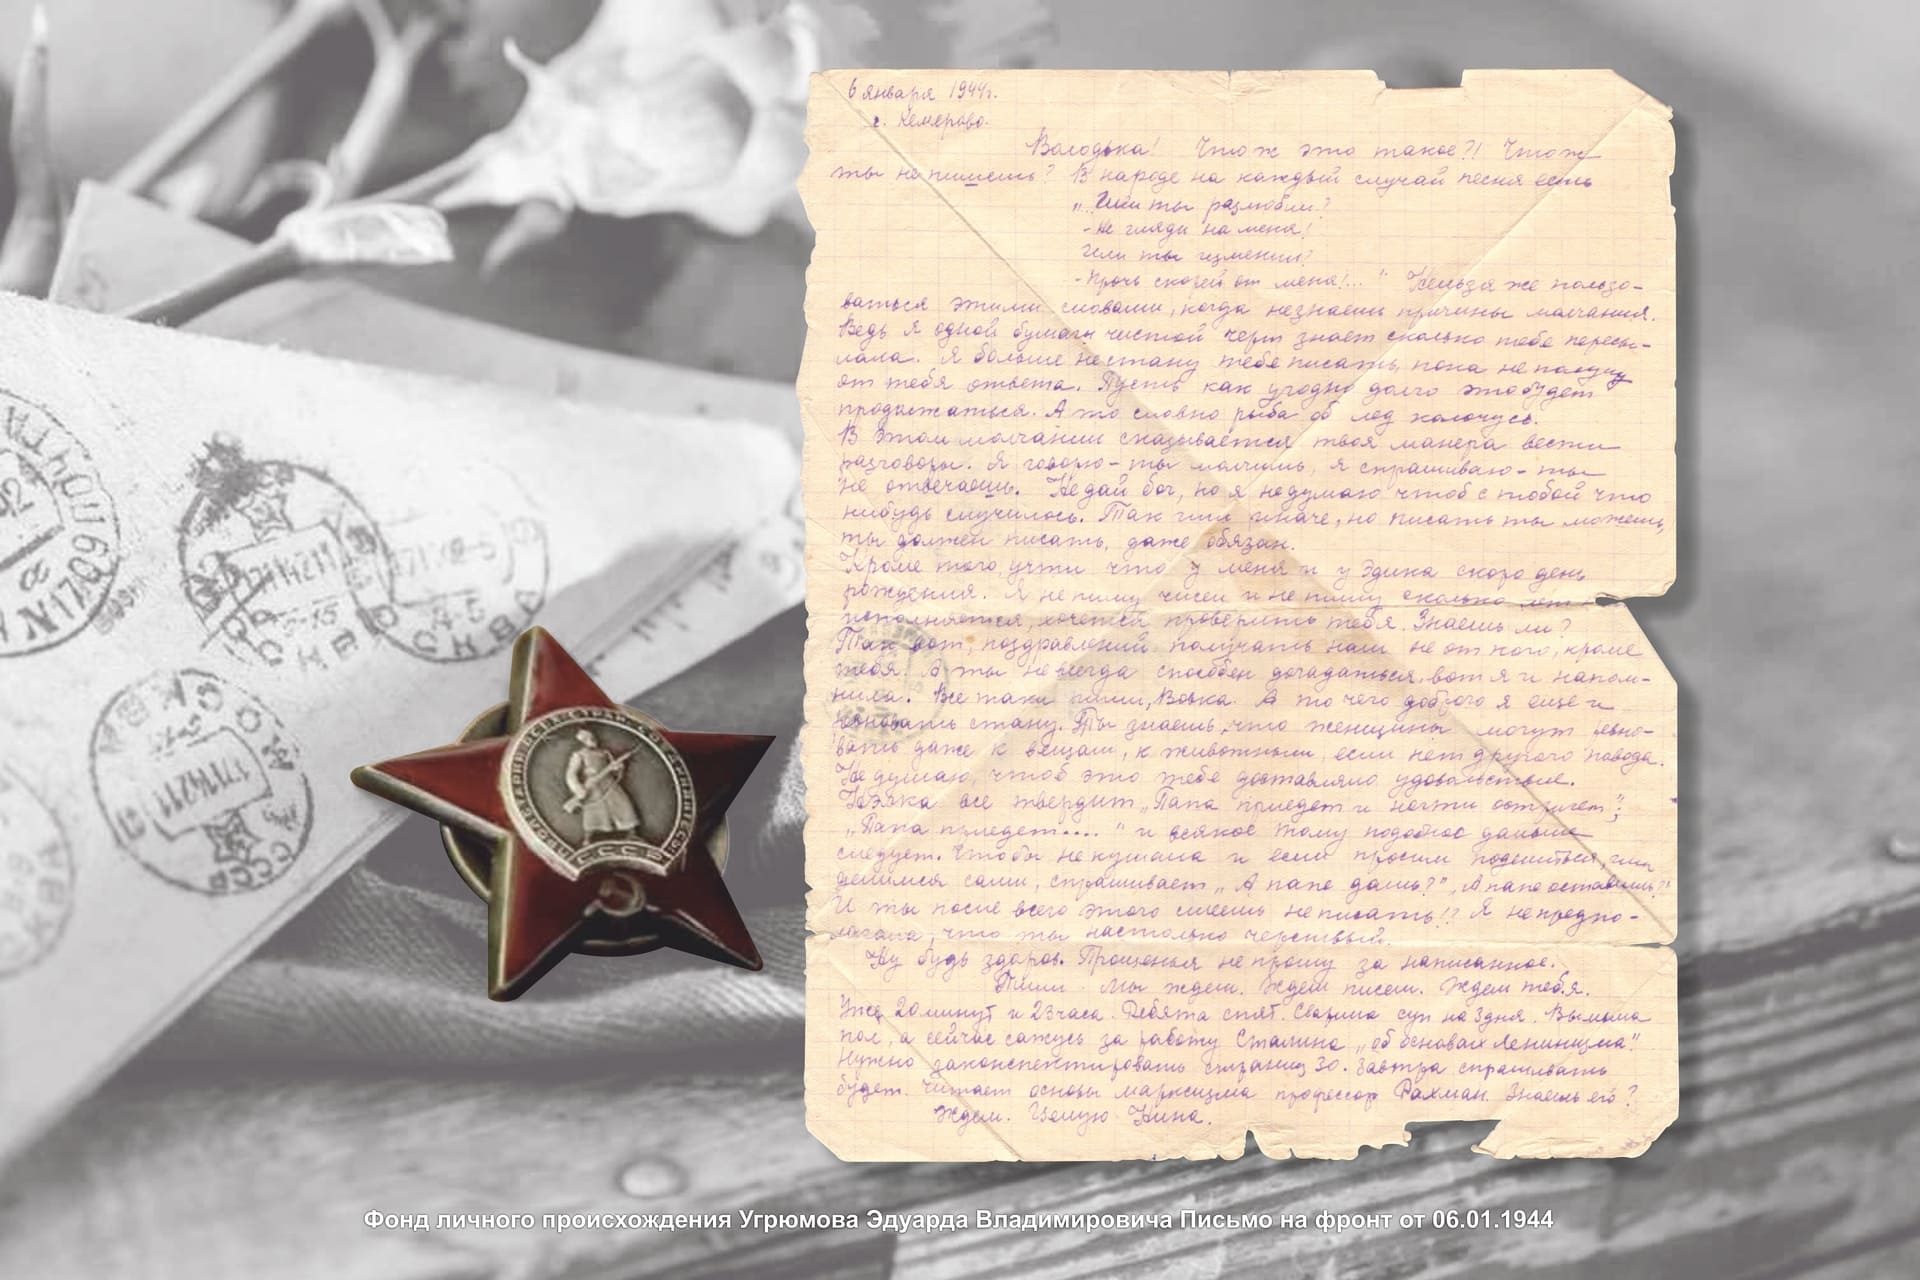 6 января 1944г.
г. Кемерово.
Володька! Что ж это такое?! Что ж
ты не пишешь? В народе на каждый случай песня есть
„...Или ты разлюбил?
- Не гляди на меня!
Или ты изменил?
- Прочь скорей от меня!..." Нельзя же пользо-
ваться этими словами, когда незнаешь причины молчания.
Ведь я одной бумаги чистой черт знает сколько тебе пересы-
лала. Я больше нестану тебе писать, пока не получу
от тебя ответа. Пусть как угодно долго это будет
продолжаться. А то словно рыба об лед колочусь.
В этом молчании сказывается твоя манера вести
разговоры. Я говорю - ты молчишь, я спрашиваю - ты
не отвечаешь. Не дай бог, но я недумаю чтоб с тобой что
нибудь случилось. Так или иначе, но писать ты можешь,
ты должен писать, даже обязан.
Кроме того, учти что у меня и у Эдика скоро день
рождения. Я не пишу чисел и не пишу сколько лет
исполняется, хочется проверить тебя. Знаешь ли?
Так вот, поздравлений получать нам не от кого, кроме
тебя. А ты не всегда способен догадаться, вот я и напом-
нила. Все таки пиши, Вовка. А то чего доброго я еще и
ревновать стану. Ты знаешь, что женщины могут ревно-
вать даже к вещам, к животным, если нет другого повода.
Не думаю, чтоб это тебе доставляло удовольствие.
все твердит „Папа приедет и ногти острижет";
„Папа приедет...." и всякое тому подобное дальше
следует. Чтобы не кушала и если просим поделиться, или
делимся сами, спрашивает „А папе дашь?", „А папе оставишь?"
И ты после всего этого смеешь не писать!? Я непредпо-
лагала, что ты настолько черствый.
Ну будь здоров. Прощенья не прошу за написанное.
Пиши. Мы ждем. Ждем писем. Ждем тебя.
Уже 20 минут и 23 часа. Ребята спят. Сварила суп на 3 дня. Вымыла
пол, а сейчас сажусь за работу Сталина „об основах ленинизма".
Нужно законспектировать страниц 30. Завтра спрашивать
будет. Читает основы марксизма профессор Рахман. Знаешь его?
Ждем. Целую Нина.
ПРОЛЕТАРИИ ВСЕХ СТРАН, СОЕДИНЯЙТЕСЬ!
СССР
МОСКВА
171142 11
СССР
Фонд личного происхождения Угрюмова Эдуарда Владимировича Письмо на фронт от 06.01.1944